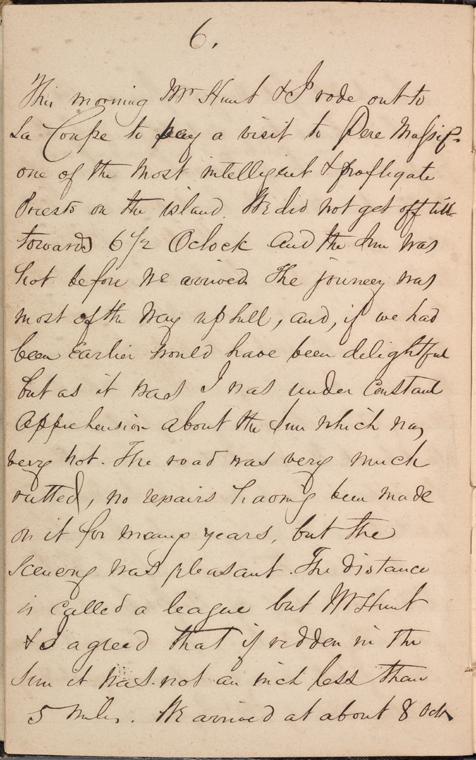 6.
This morning Mr Hunt & I rode out to
La Coupe to pay a visit to Pere Massif.
one of the most intelligent & profligate
Priests on the island. We did not get off till
towards 6 1/2 Oclock and the Sun was
hot before we arrived The journey was
most of the way uphill, and, if we had
been earlier would have been delightful
but as it was I was under constant
apprehension about the Sun which was
very hot. The road was very much
rutted, no repairs having been made
on it for many years, but the
Scenery was pleasant. The distance
is called a league but Mr Hunt
& I agreed that if ridden in the
Sun it was not an inch less than
5 Miles. We arrived at about 8 Ock